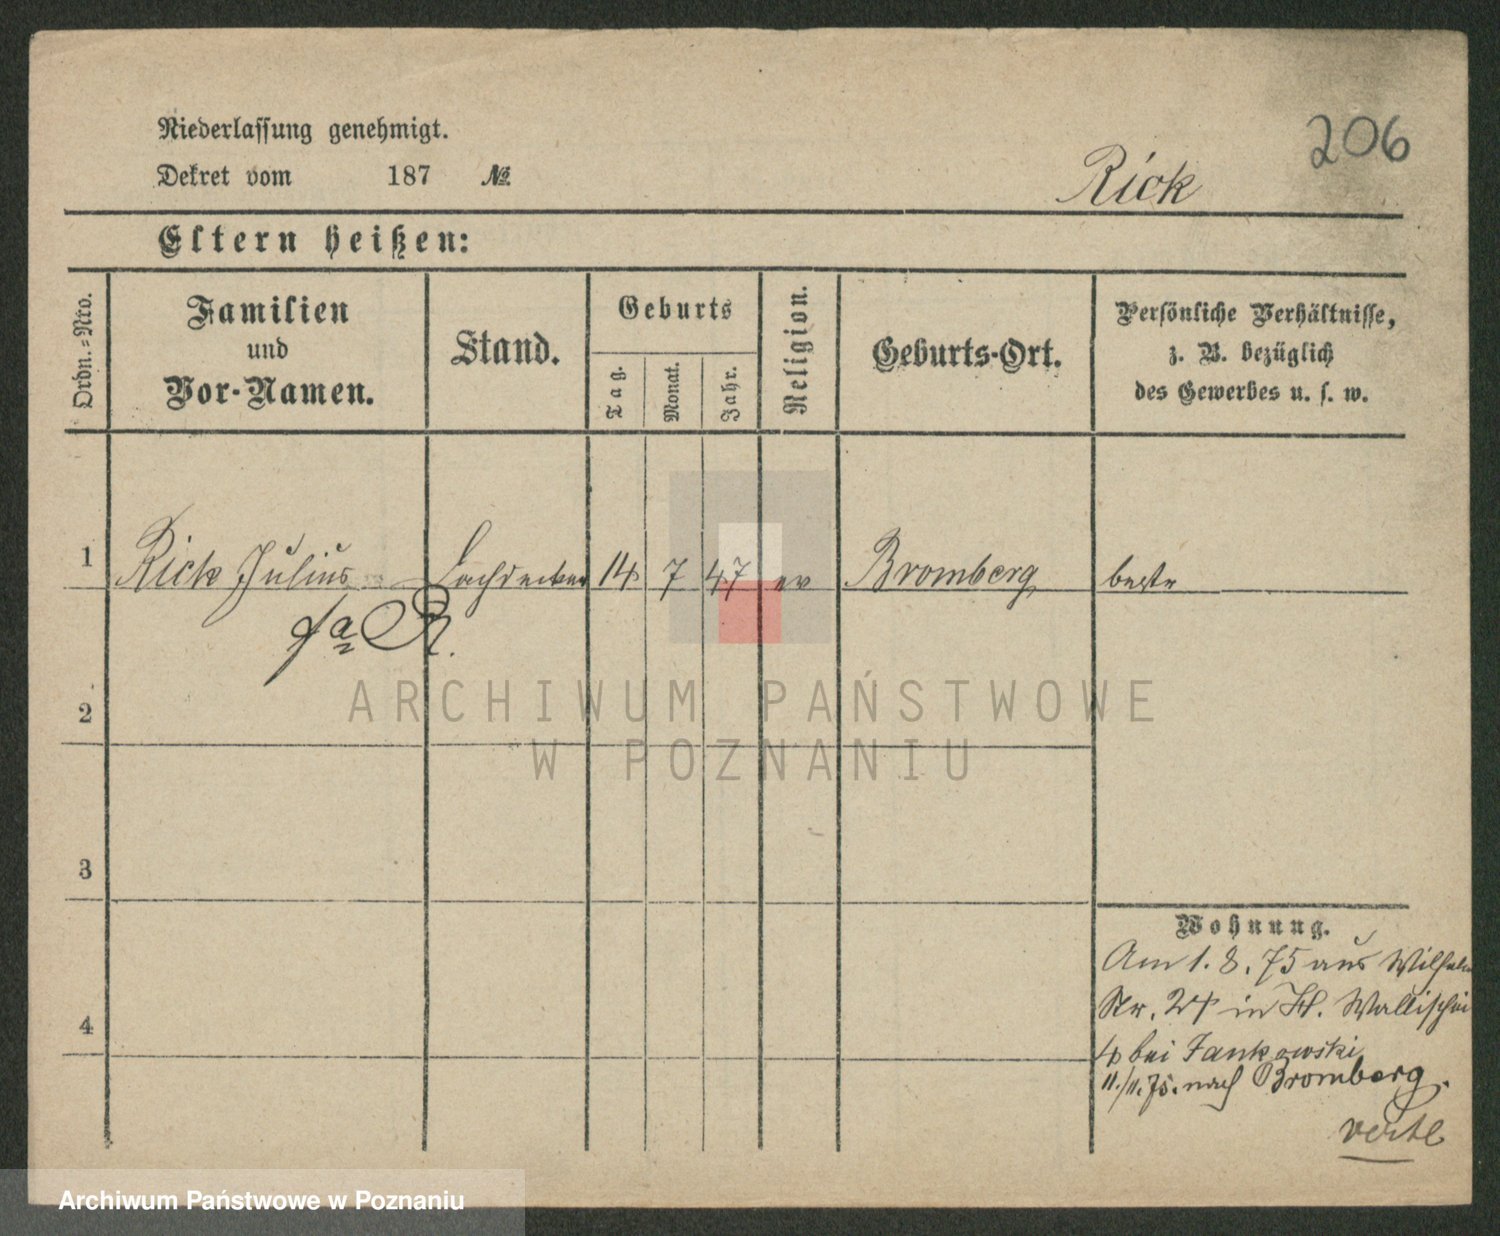 206
Niederlassung genehmigt.
Dekret vom 187 №
Rick
Eltern heißen:
Ordn.-Nro.
Familien
und
Vor-Namen.
Stand.
Geburts
Tag.
Monat.
Jahr.
Religion.
Geburts-Ort.
Persönliche Verhältnisse,
z. B. bezüglich
des Gewerbes u. s. w.
1 Rick Julius 14 7 47 ev Bromberg
2
ARCHIWUM PAŃSTWOWE
W POZNANIU
3
4
Wohnung.
Am 1. 8. 75 aus Wilhelm
Str. 24 in Wallischei
4 bei Jankowski
11./11. 75. nach Bromberg.
Archiwum Państwowe w Poznaniu